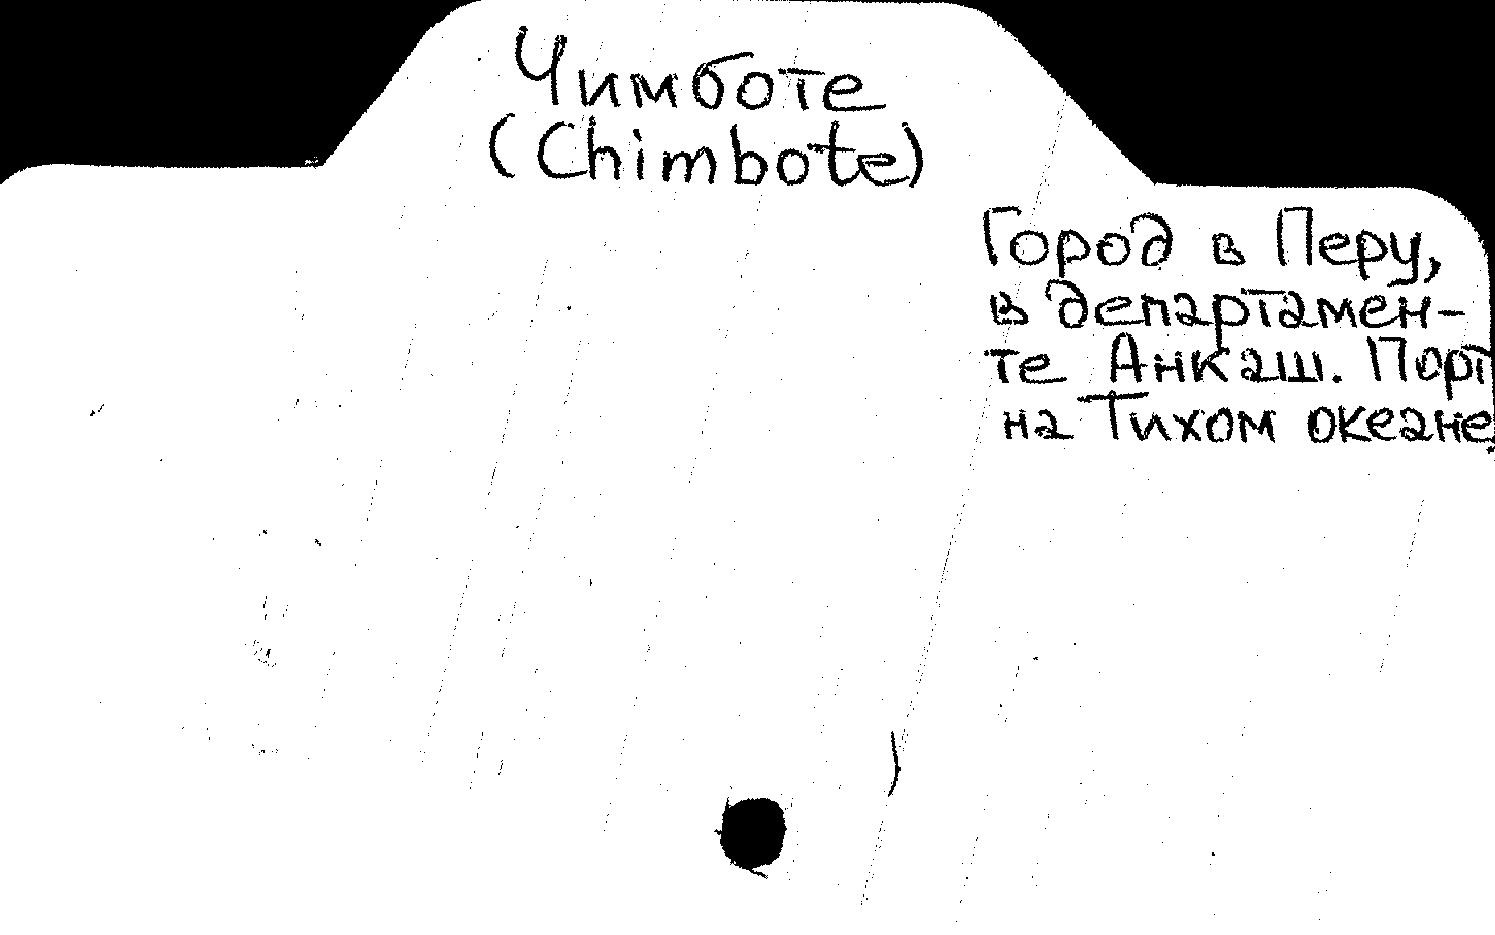 Чимботе
(Chimbote)
Город в Перу,
в департамен-
те Анкаш. Порт
на Тихом океане.